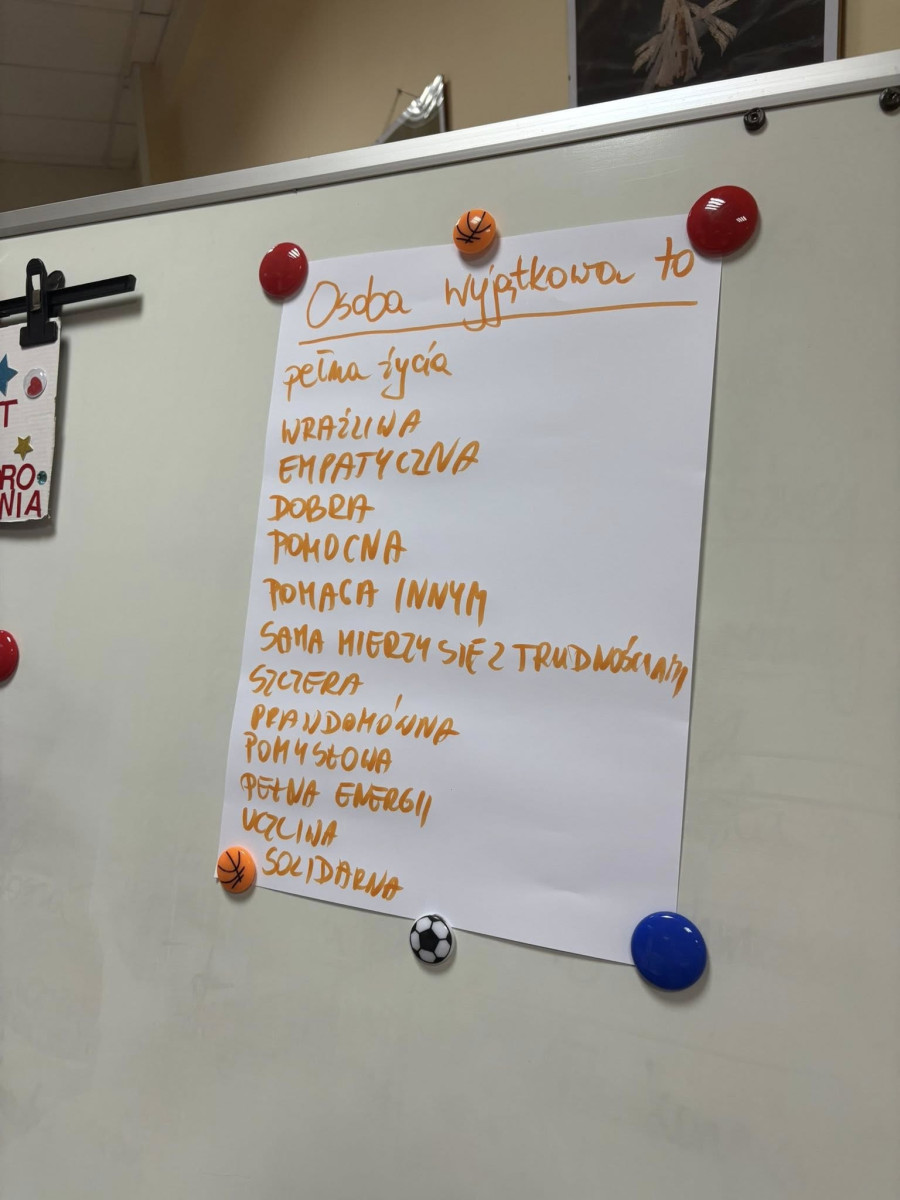 Osoba wyjątkowa to
pełna życia
WRAŻLIWA
EMPATYCZNA
DOBRA
POMOCNA
POMAGA INNYM
SAMA MIERZY SIĘ Z TRUDNOŚCIAMI
SZCZERA
PRAWDOMÓWNA
POMYSŁOWA
PEŁNA ENERGII
UCZLIWA
SOLIDARNA
T
RO
NIA